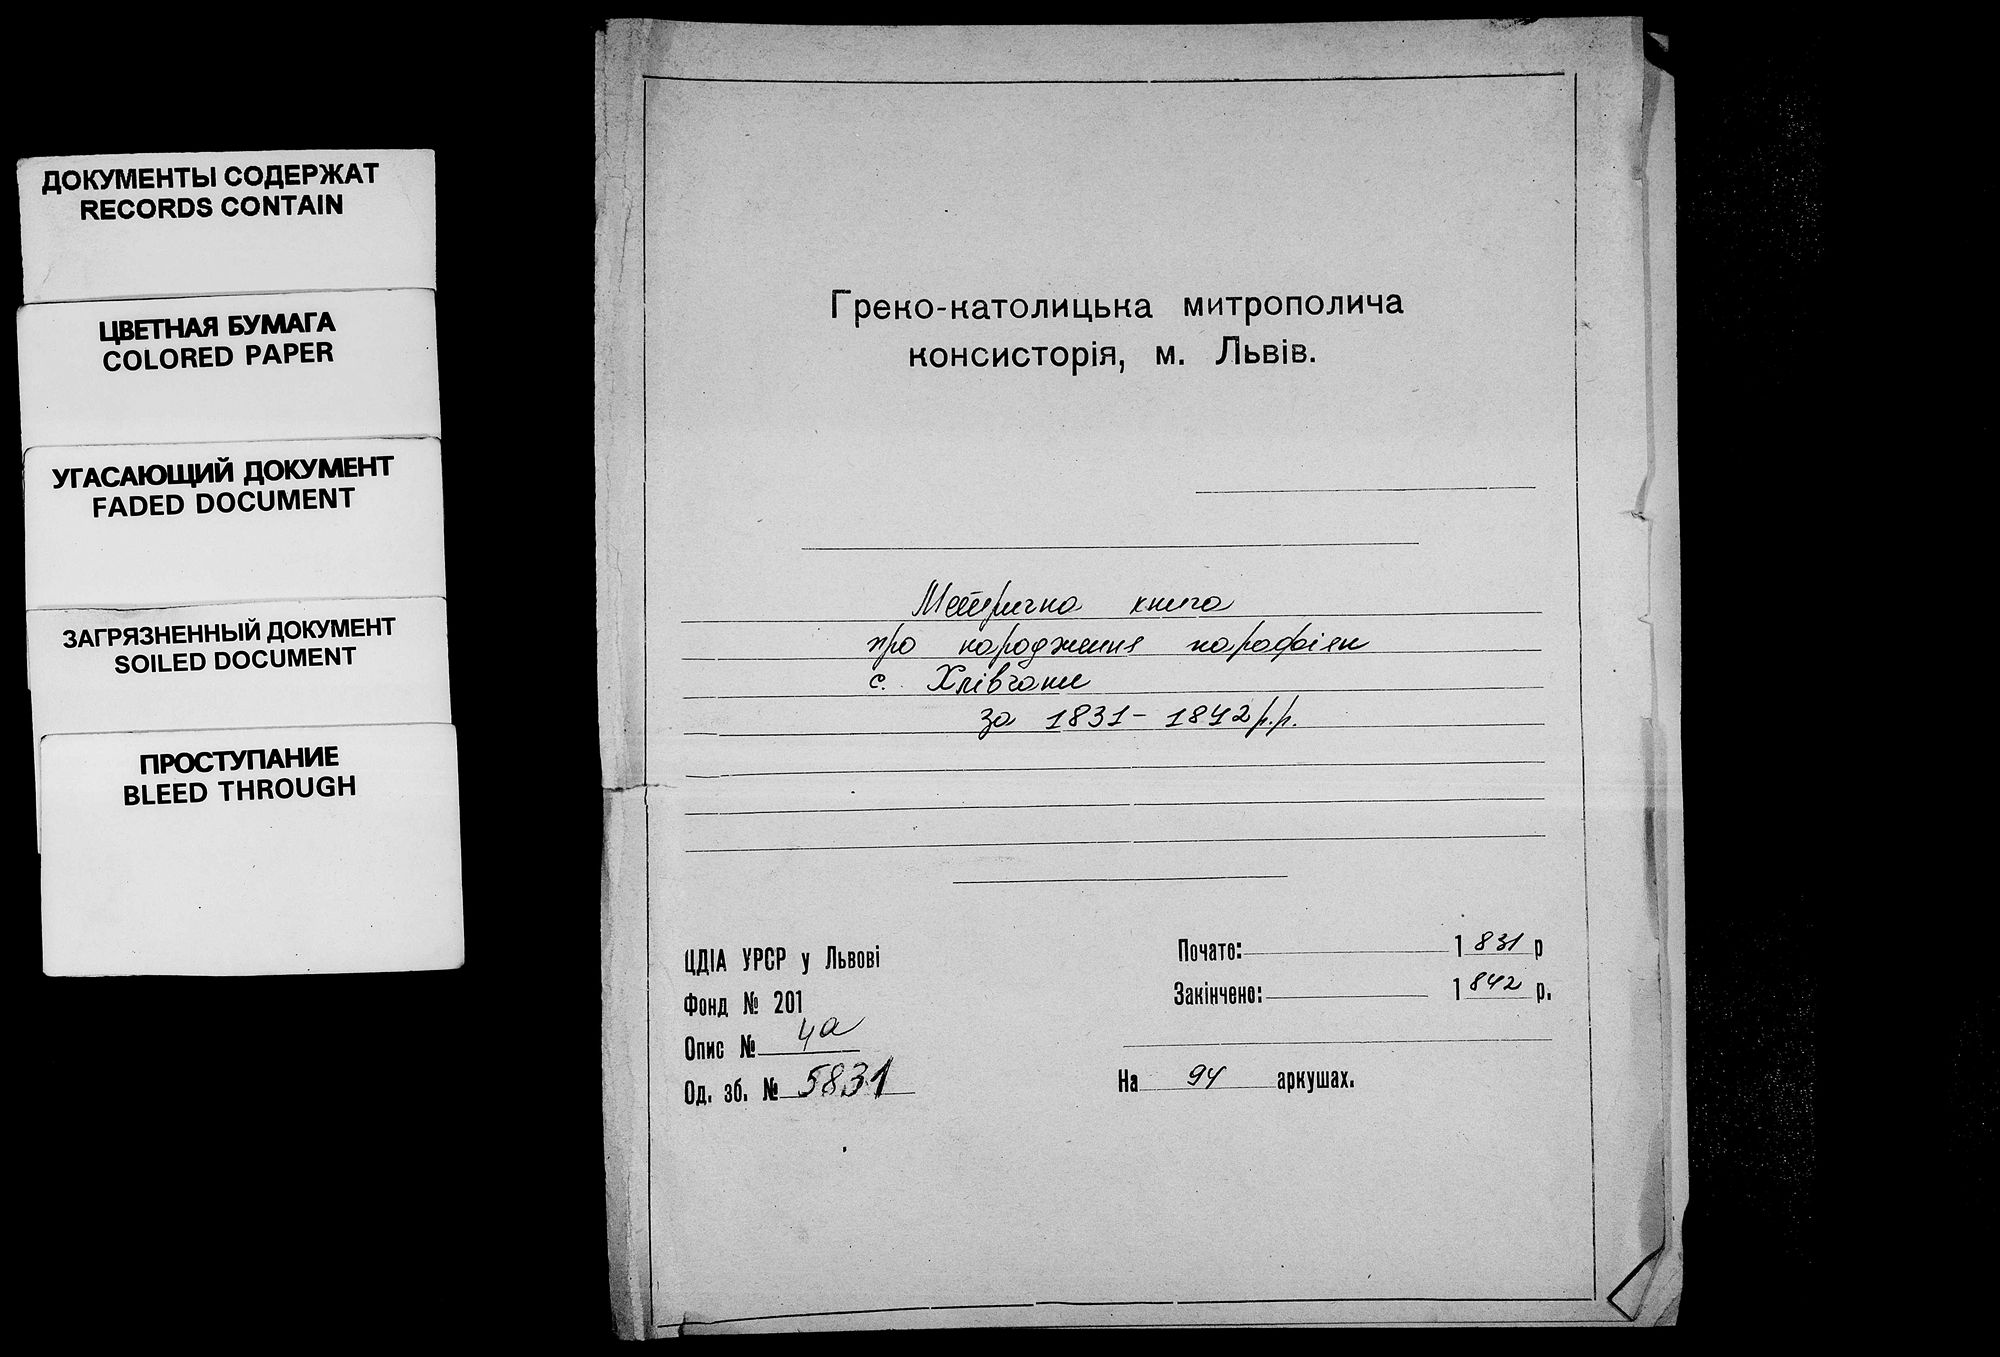 ДОКУМЕНТЫ СОДЕРЖАТ
RECORDS CONTAIN
ЦВЕТНАЯ БУМАГА
COLORED PAPER
УГАСАЮЩИЙ ДОКУМЕНТ
FADED DOCUMENT
ЗАГРЯЗНЕННЫЙ ДОКУМЕНТ
SOILED DOCUMENT
ПРОСТУПАНИЕ
BLEED THROUGH
Греко-католицька митрополича
консисторія, м. Львів.
Метрична книга
про народження парафіян
с. Хлівчани
за 1831-1842 р.р.
ЦДІА УРСР у Львові
Фонд № 201
Опис № 4а
Од. зб. № 5831
Почато: 1831 р
Закінчено: 1842 р.
На 94 аркушах.